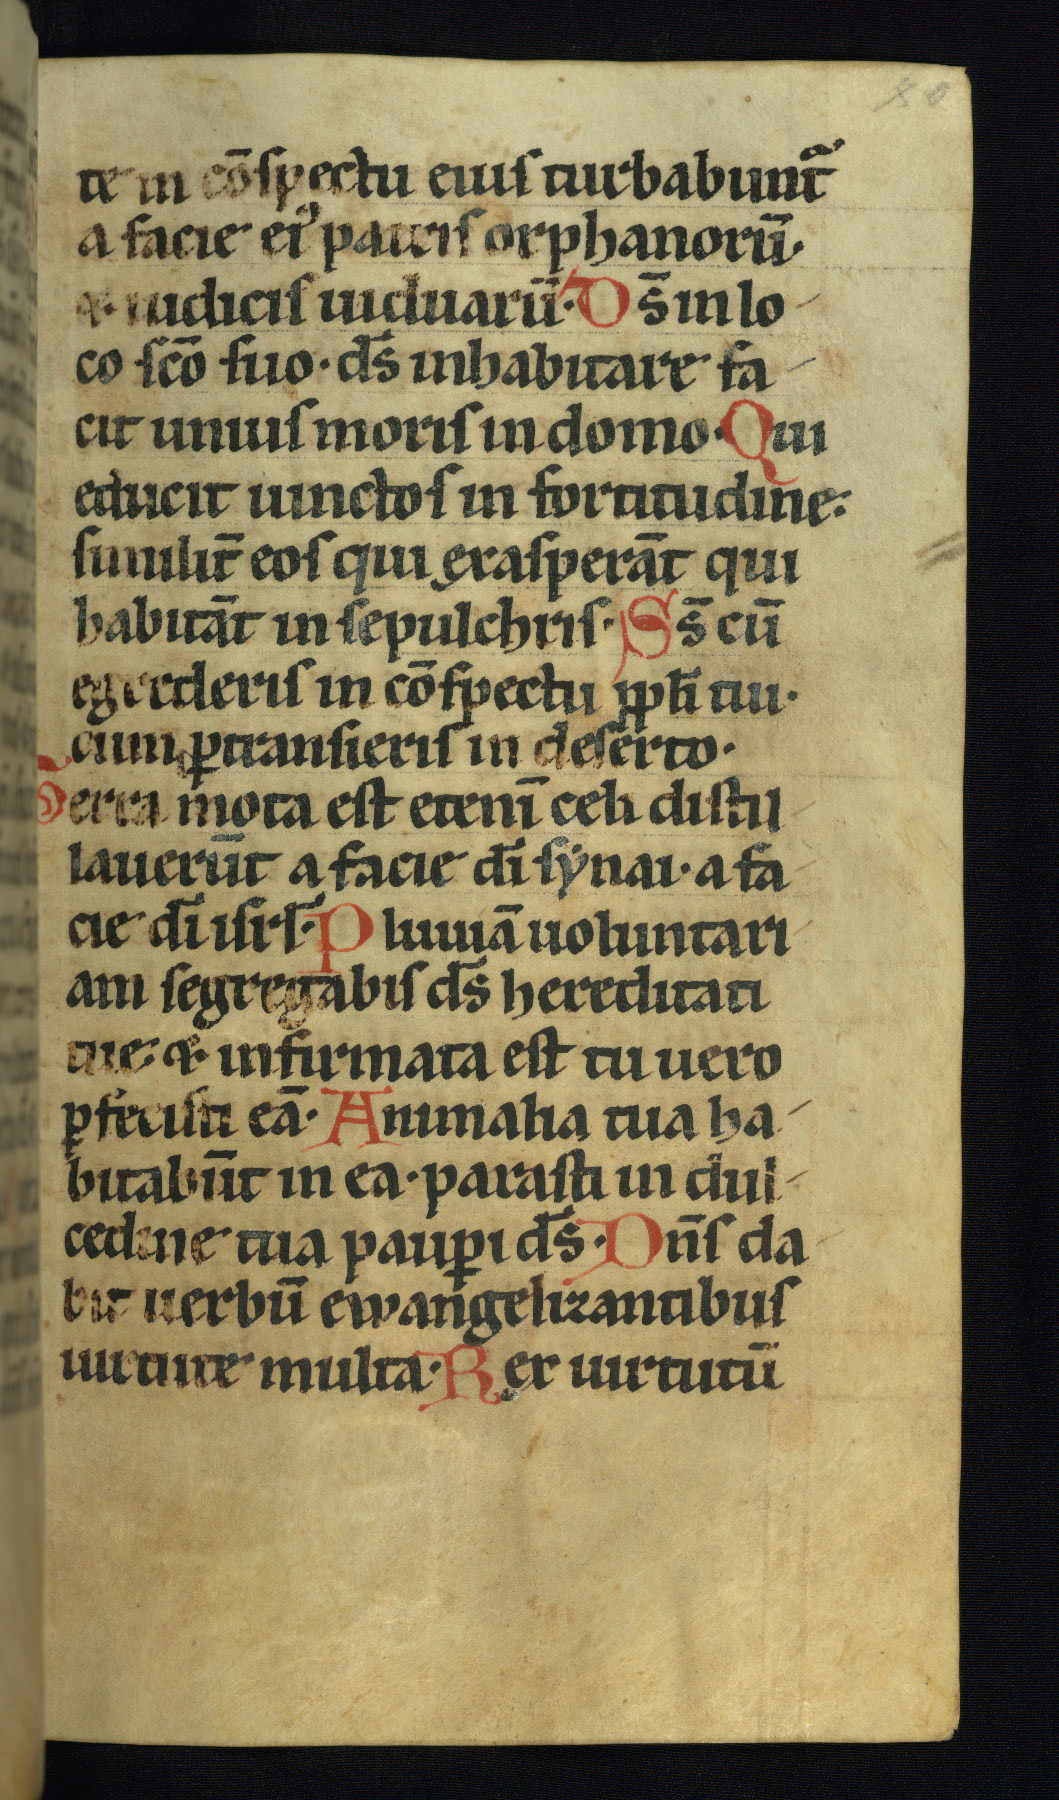 te in cōspectu eius turbabunt᷑
a facie ei᷒ patris orphanorū.
⁊ iudicis uiduarū· Ds̄ in lo
co sc̄o suo· ds̄ inhabitare fa
cit unius moris in domo· Qui
educit uinctos in fortitudine·
similit̄ eos qui exasperāt qui
habitāt in sepulchris· Ds̄ cū
egrederis in cōspectu ppl̄i tui·
cum ꝑtransieris in deserto·
Terra mota est etenī celi distil
lauerūt a facie dī sẏnai· a fa
cie dī isrl̄· Pluuiā uoluntari
am segregabis ds̄ hereditati
tue· ⁊ infirmata est tu uero
ꝑfecisti eā· Animalia tua ha
bitabūt in ea· parasti in dul
cedine tua pauꝑi ds̄· Dn̄s da
bit uerbū ewangelizantibus
uirtute multa· Rex uirtutū